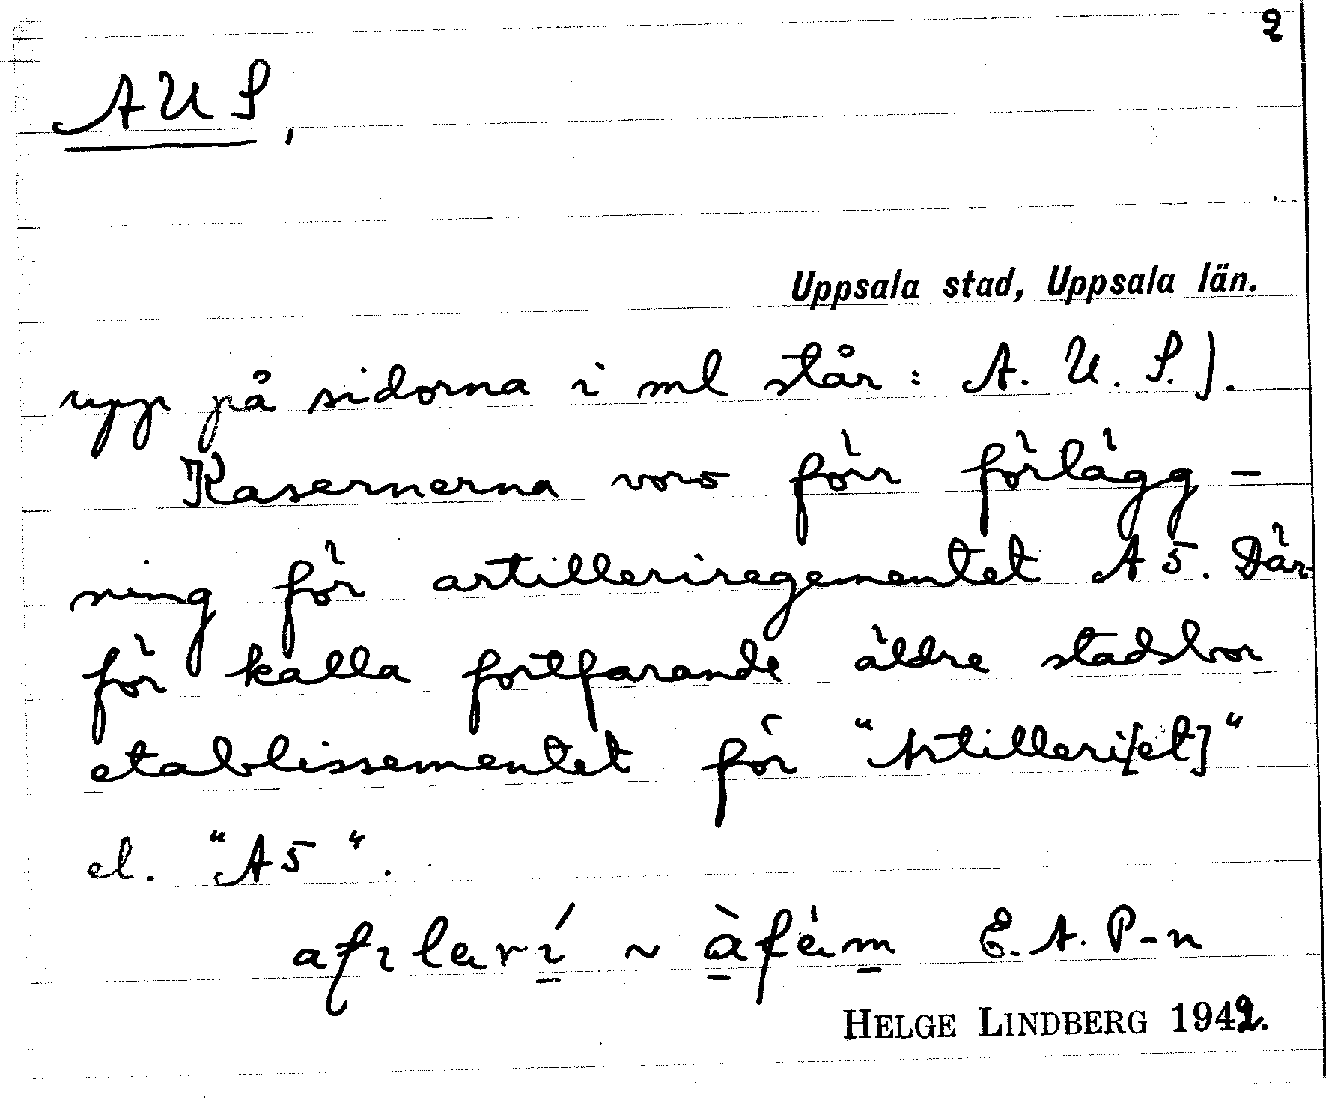 2
AUS,
Uppsala stad, Uppsala län.
upp på sidorna i ml står: A. U. S.).
Kasernerna voro förr förlägg-
ning för artilleriregementet A5. Där-
för kalla fortfarande äldre stadsbor
etablissementet för "Artilleri[et]"
el. "A5".
~ E. A. P-n
HELGE LINDBERG 1942.